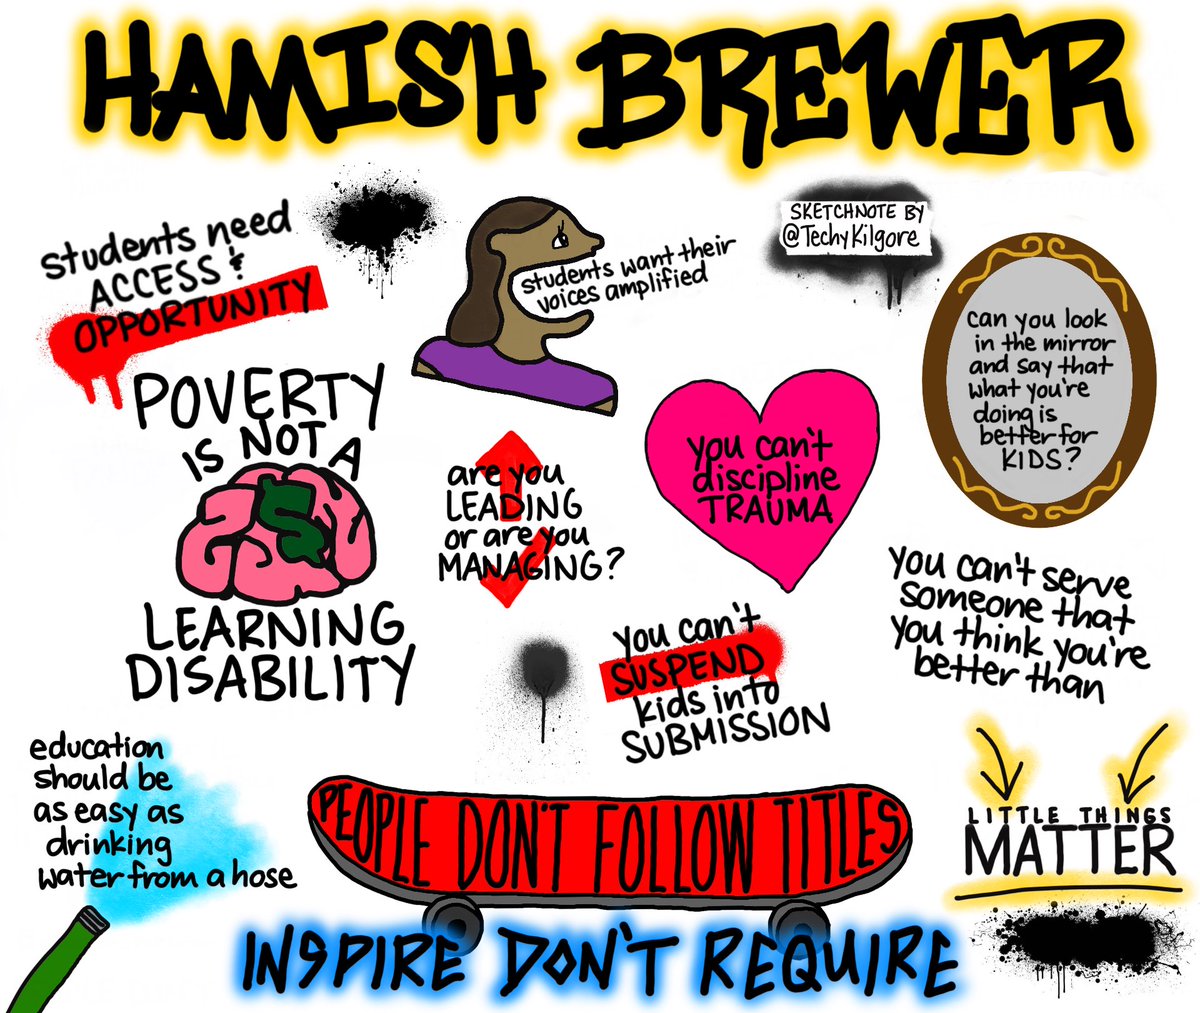 HAMISH BREWER
students need
ACCESS &
OPPORTUNITY
students want their
voices amplified
SKETCHNOTE BY
@TechyKilgore
can you look
in the mirror
and say that
what you're
doing is
better for
KIDS?
POVERTY
IS NOT A
LEARNING
DISABILITY
are you
LEADING
or are you
MANAGING?
you can't
discipline
TRAUMA
you can't serve
someone that
you think you're
better than
you can't
SUSPEND
kids into
SUBMISSION
education
should be
as easy as
drinking
water from a hose
PEOPLE DON'T FOLLOW TITLES
LITTLE THINGS
MATTER
INSPIRE DON'T REQUIRE